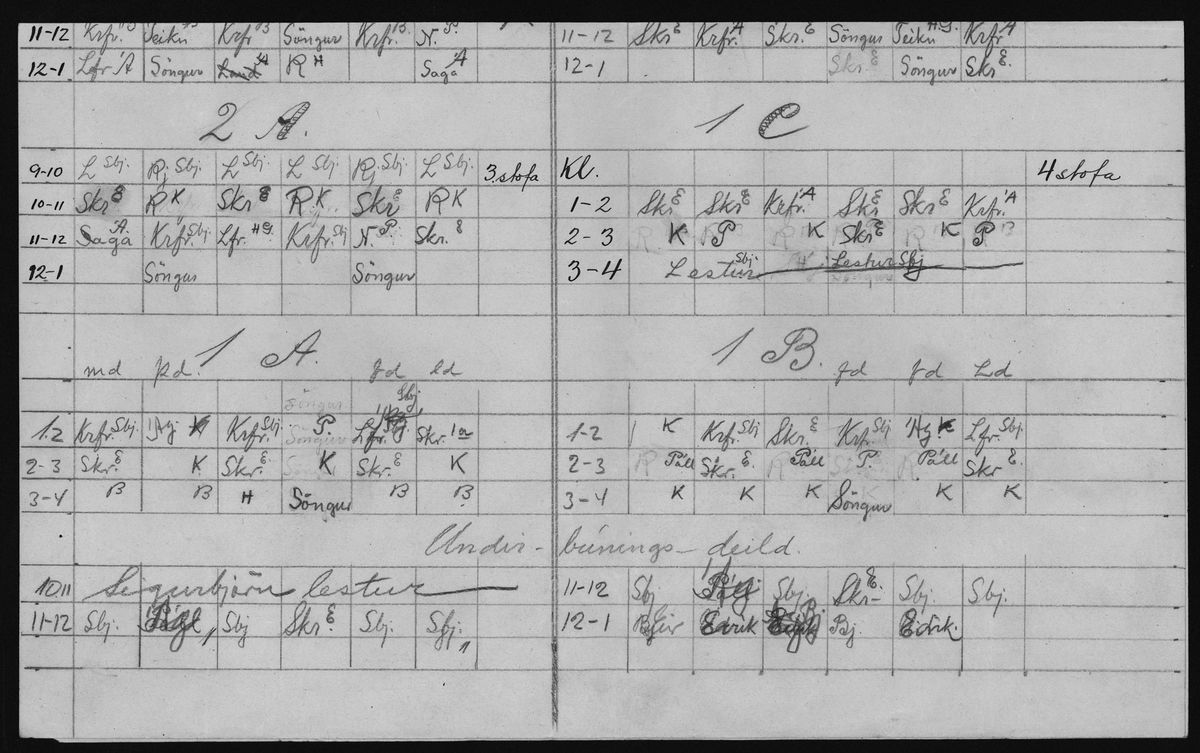 11-12 Krfr. Teikn Krfr B Söngur Krfr. B N. P.
12-1 Lfr A Söngur Land A R H Saga A
2 A.
9-10 L Sbj. Rj Sbj. L Sbj. L Sbj. Rj Sbj. L Sbj. 3. stofa
10-11 Skr E R K Skr E R K Skr E R K
11-12 Saga A. Krfr. Sbj Lfr. HG. Krfr. Sbj N. P Skr. E
12-1 Söngur Söngur
1 A.
md þd. fd ld
Söngur Sbj.
1-2 Krfr. Sbj. K Krfr. Sbj. P. Lfr. Skr.
2-3 Skr. E K Skr. E K Skr. E K
3-4 B B H Söngur B B
11-12 Skr E Krfr. A Skr. E Söngur Teikn H.G. Krfr. A
12-1 Skr. E Söngur Skr E.
1 C
Kl. 4 stofa
1-2 Skr E Skr E Krfr. A Skr E Skr E Krfr. A
2-3 K P K Skr E K P
3-4 Lestur Sbj. Lestur Sbj
1 B.
fd Ld
1-2 K Krfr. Sbj Skr. E Krfr. Sbj K Lfr. Sbj.
2-3 R Páll Skr. E. R Páll P. R Páll Skr E.
3-4 K K K Söngur K K
Undir - búnings - deild.
10-11 Sigurbjörn lestur
11-12 Sbj. Sbj Skr. E Sbj. Sbj.
11-12 Sbj Sbj. Skr E. Sbj. Sbj.
12-1 Eirik Bj Eirik.